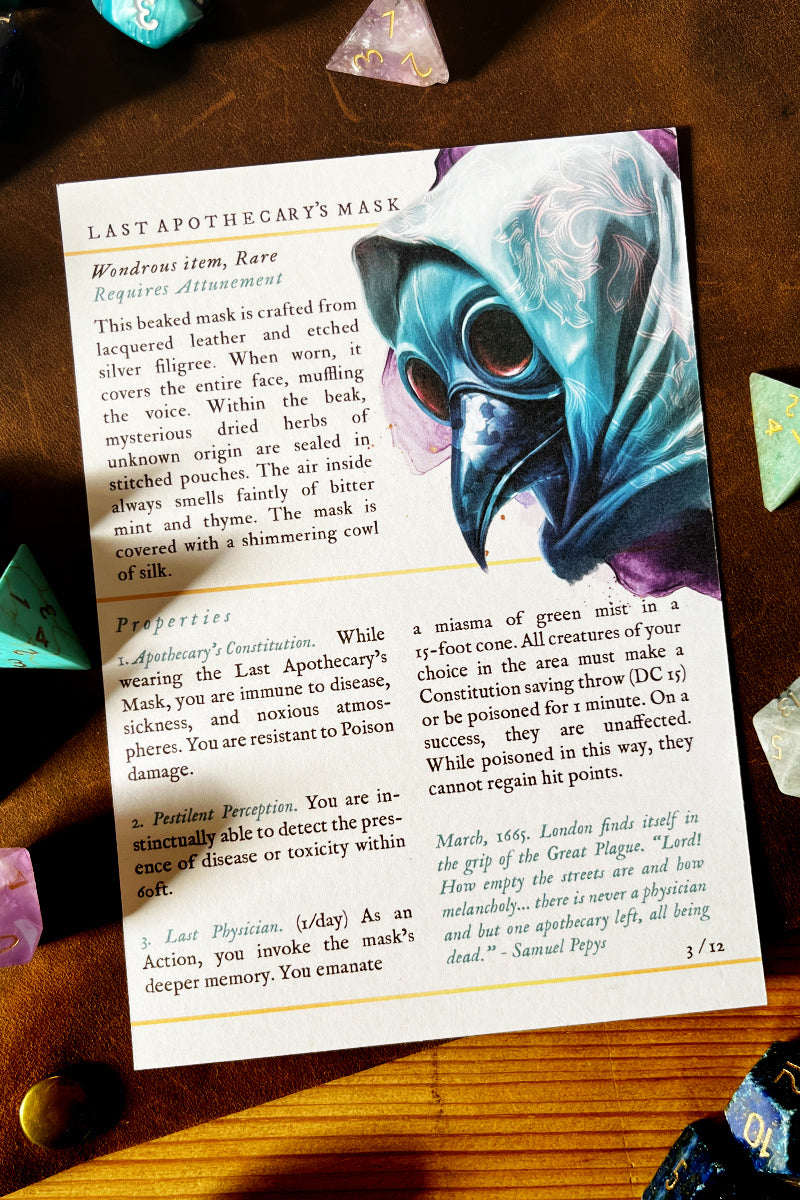 LAST APOTHECARY'S MASK
Wondrous item, Rare
Requires Attunement
This beaked mask is crafted from
lacquered leather and etched
silver filigree. When worn, it
covers the entire face, muffling
the voice. Within the beak,
mysterious dried herbs of
unknown origin are sealed in
stitched pouches. The air inside
always smells faintly of bitter
mint and thyme. The mask is
covered with a shimmering cowl
of silk.
Properties
1. Apothecary's Constitution. While
wearing the Last Apothecary's
Mask, you are immune to disease,
sickness, and noxious atmos-
pheres. You are resistant to Poison
damage.
2. Pestilent Perception. You are in-
stinctually able to detect the pres-
ence of disease or toxicity within
60ft.
3. Last Physician. (1/day) As an
Action, you invoke the mask's
deeper memory. You emanate
a miasma of green mist in a
15-foot cone. All creatures of your
choice in the area must make a
Constitution saving throw (DC 15)
or be poisoned for 1 minute. On a
success, they are unaffected.
While poisoned in this way, they
cannot regain hit points.
March, 1665. London finds itself in
the grip of the Great Plague. "Lord!
How empty the streets are and how
melancholy... there is never a physician
and but one apothecary left, all being
dead." - Samuel Pepys
3 / 12
3
1
3
2
2
4
1
3
4
2
5
10
5